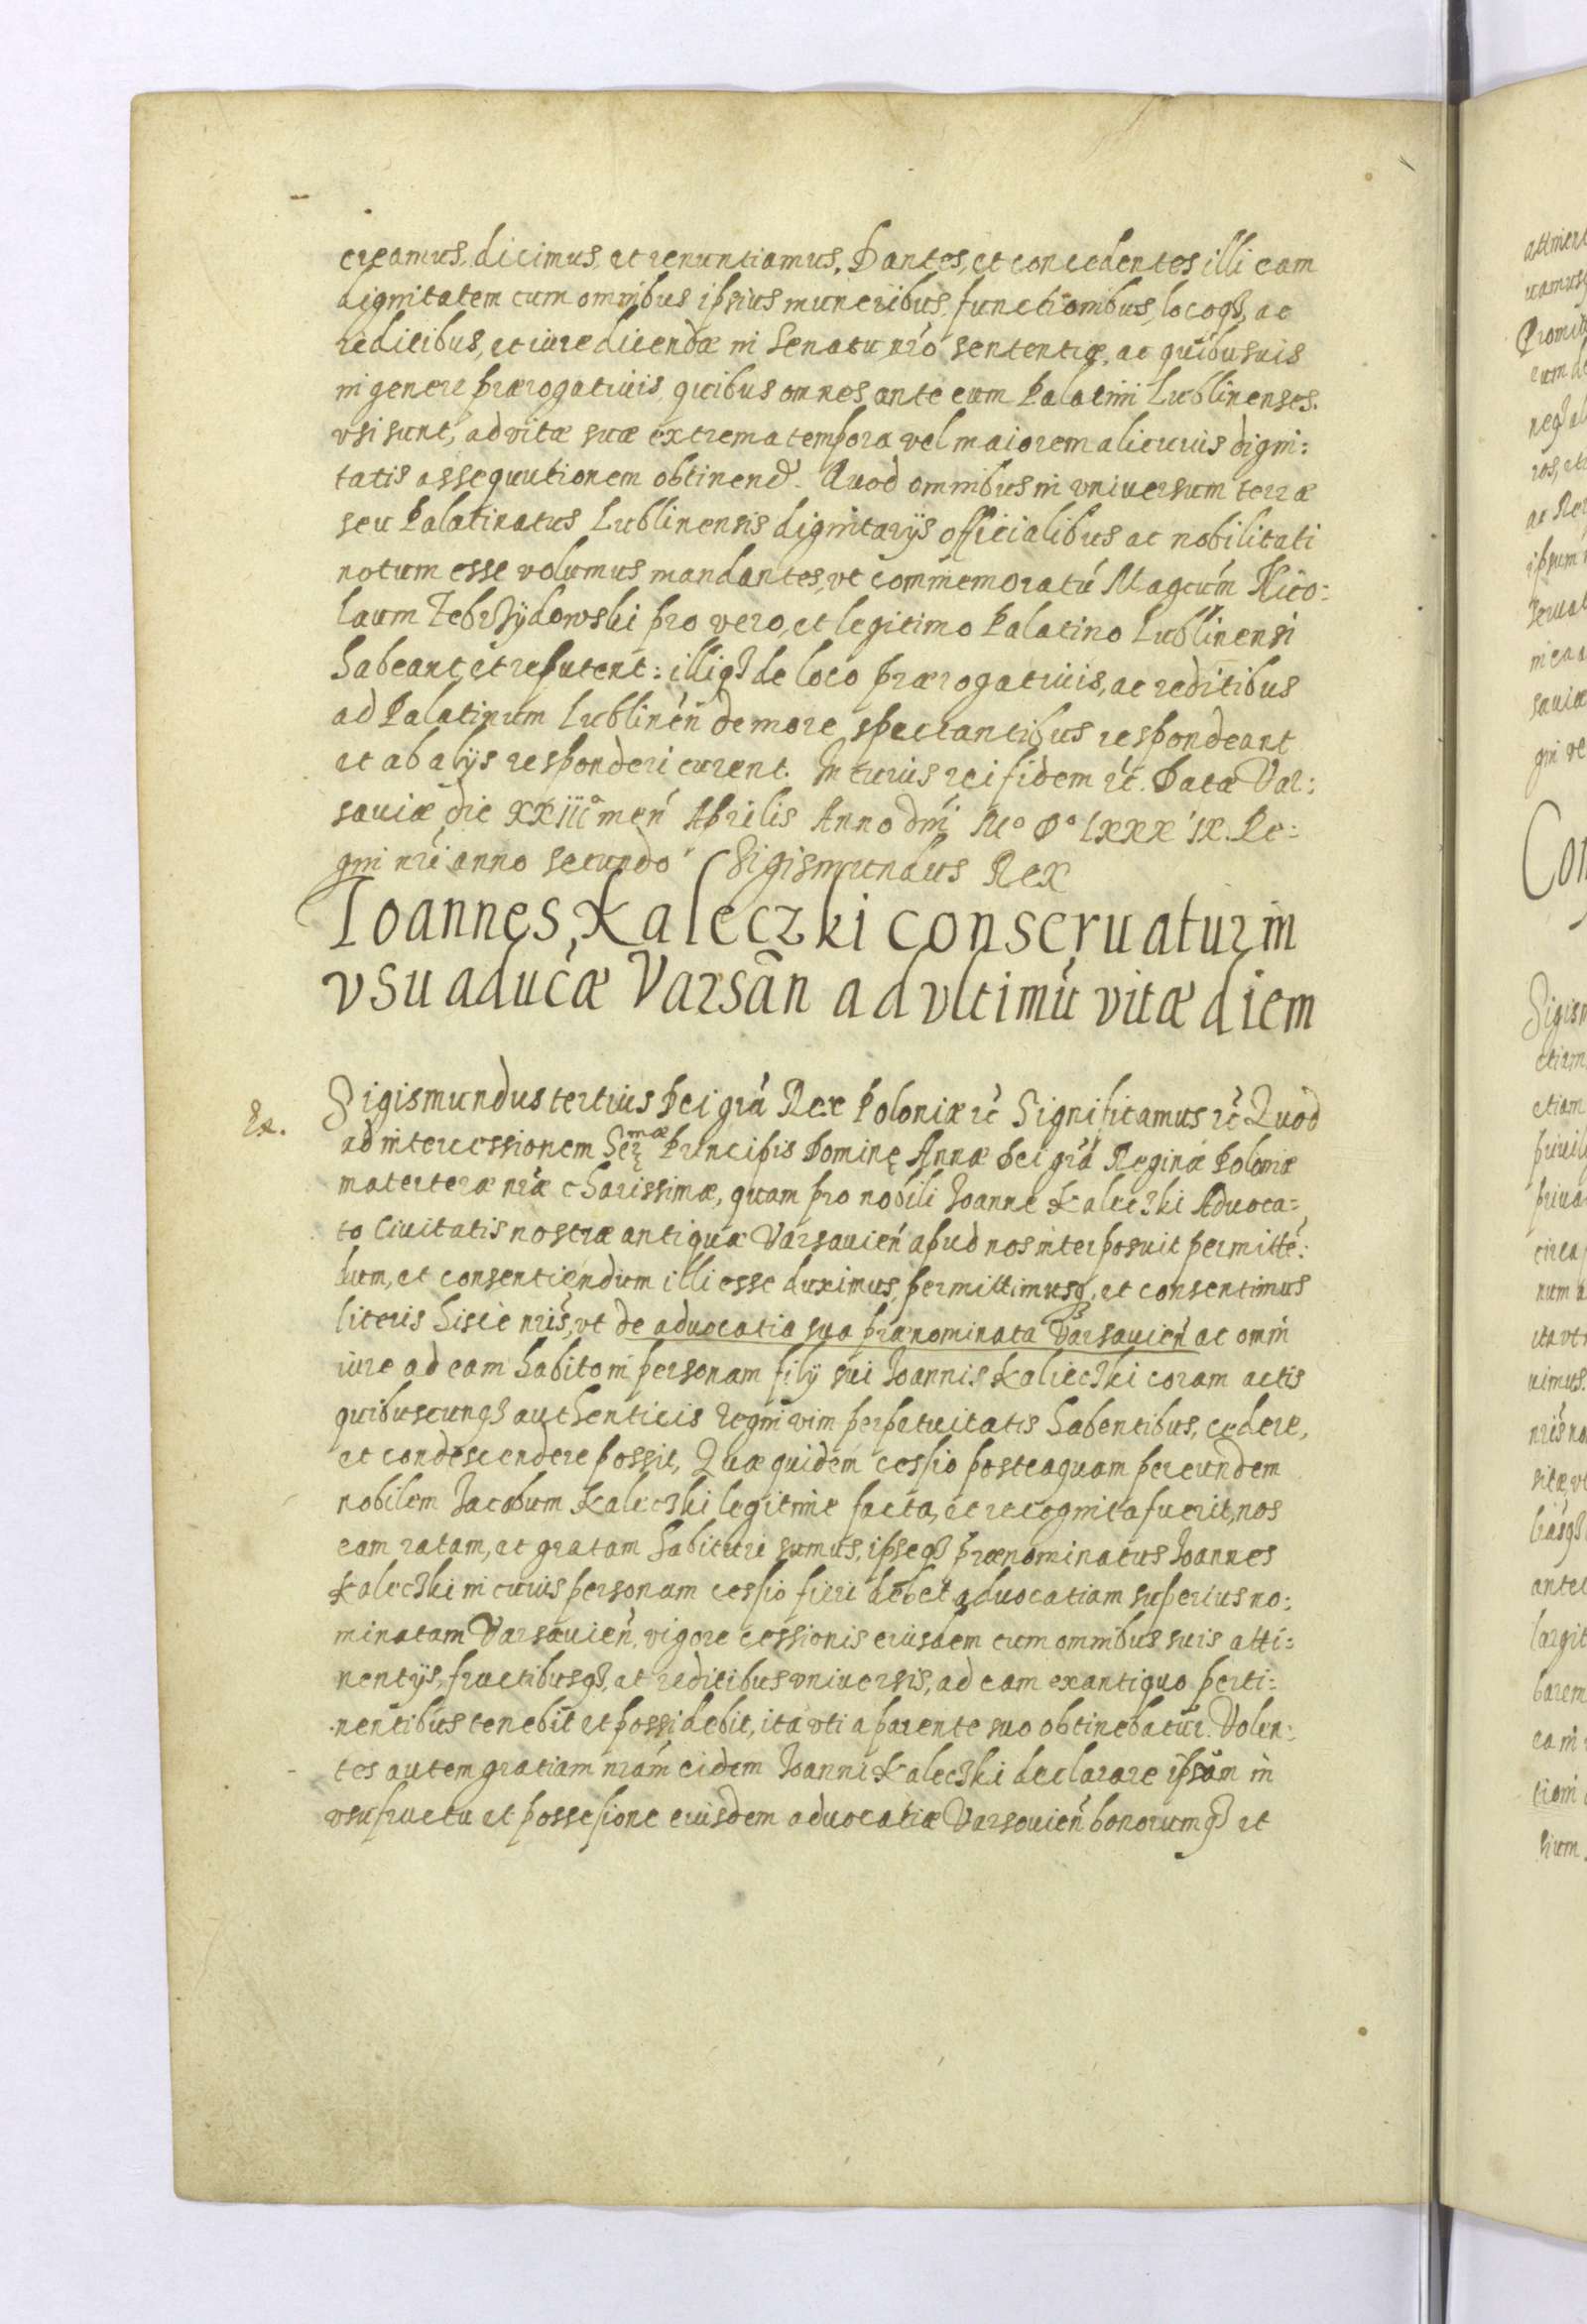 creamus, dicimus, et renuntiamus. Dantes, et concedentes illi eam
dignitatem cum omnibus ipsius muneribus, functionibus, locoq3, ac
reditibus, et iure dicendæ in Senatu nr̃o sententiæ, ac quibusuis
in genere prærogatiuis, quibus omnes ante eum Palatini Lublinenses
vsi sunt, ad vitæ suæ extrema tempora vel maiorem alicuius digni:
tatis assequutionem obtinend. Quod omnibus in vniuersum terræ
seu Palatinatus Lublinensis dignitarijs officialibus ac nobilitati
notum esse volumus mandantes, vt commemoratũ Magcũm Nico:
laum Zebrzÿdowski pro vero, et legitimo Palatino Lublinensi
habeant et reputent: illiq3 de loco prærogatiuis, ac reditibus
ad Palatinum Lublinen̄ de more spectantibus respondeant
et ab alijs responderi curent. In cuius rei fidem rc̃. Datæ Var:
sauiæ die XXIIIa men̄ Aprilis Anno dn̄i Mo Do LXXXIX. Re:
gni nr̃i anno secundo Sigismundus Rex
Ioannes Kaleczki conseruatur in
vsu aduc̃æ Varsãn ad vltimũ vitæ diem
Sigismundus tertius Dei grã Rex Poloniæ rc̃ Significamus rc̃ Quod
ad intercessionem Ser mæ Principis Dominę Annæ Dei grã Reginæ Poloniæ
materteræ nr̃æ charissimæ, quam pro nobili Ioanne Kaleczki Aduoca=
to Ciuitatis nostræ antiquæ Varsauien̄ apud nos interposuit permittẽ:
dum, et consentiendum illi esse duximus, permittimusq3, et consentimus
literis hisce nr̃is, vt de aduocatia sua prænominata Varsauien̄ ac omni
iure ad eam habito in personam filij sui Ioannis Kaleczki coram actis
quibuscunq3 authenticis Regni vim perpetuitatis habentibus, cedere,
et condescendere possit, Quæ quidem cessio posteaquam per eundem
nobilem Iacobum Kaleczki legitime facta, et recognita fuerit, nos
eam ratam, et gratam habituri sumus, ipseq3 prænominatus Ioannes
Kaleczki in cuius personam cessio fieri debet aduocatiam superius no:
minatam Varsauien̄, vigore cessionis eiusdem cum omnibus suis atti:
nentijs, fructibusq3, et reditibus vniuersis, ad eam ex antiquo perti:
nentibus tenebit et possidebit, ita vti a parente suo obtinebatur. Volen:
tes autem gratiam nr̃am eidem Ioanni Kaleczki declarare ipsum in
vsufructu et possesione eiusdem aduocatiæ Varsouien̄ bonorumq3 et